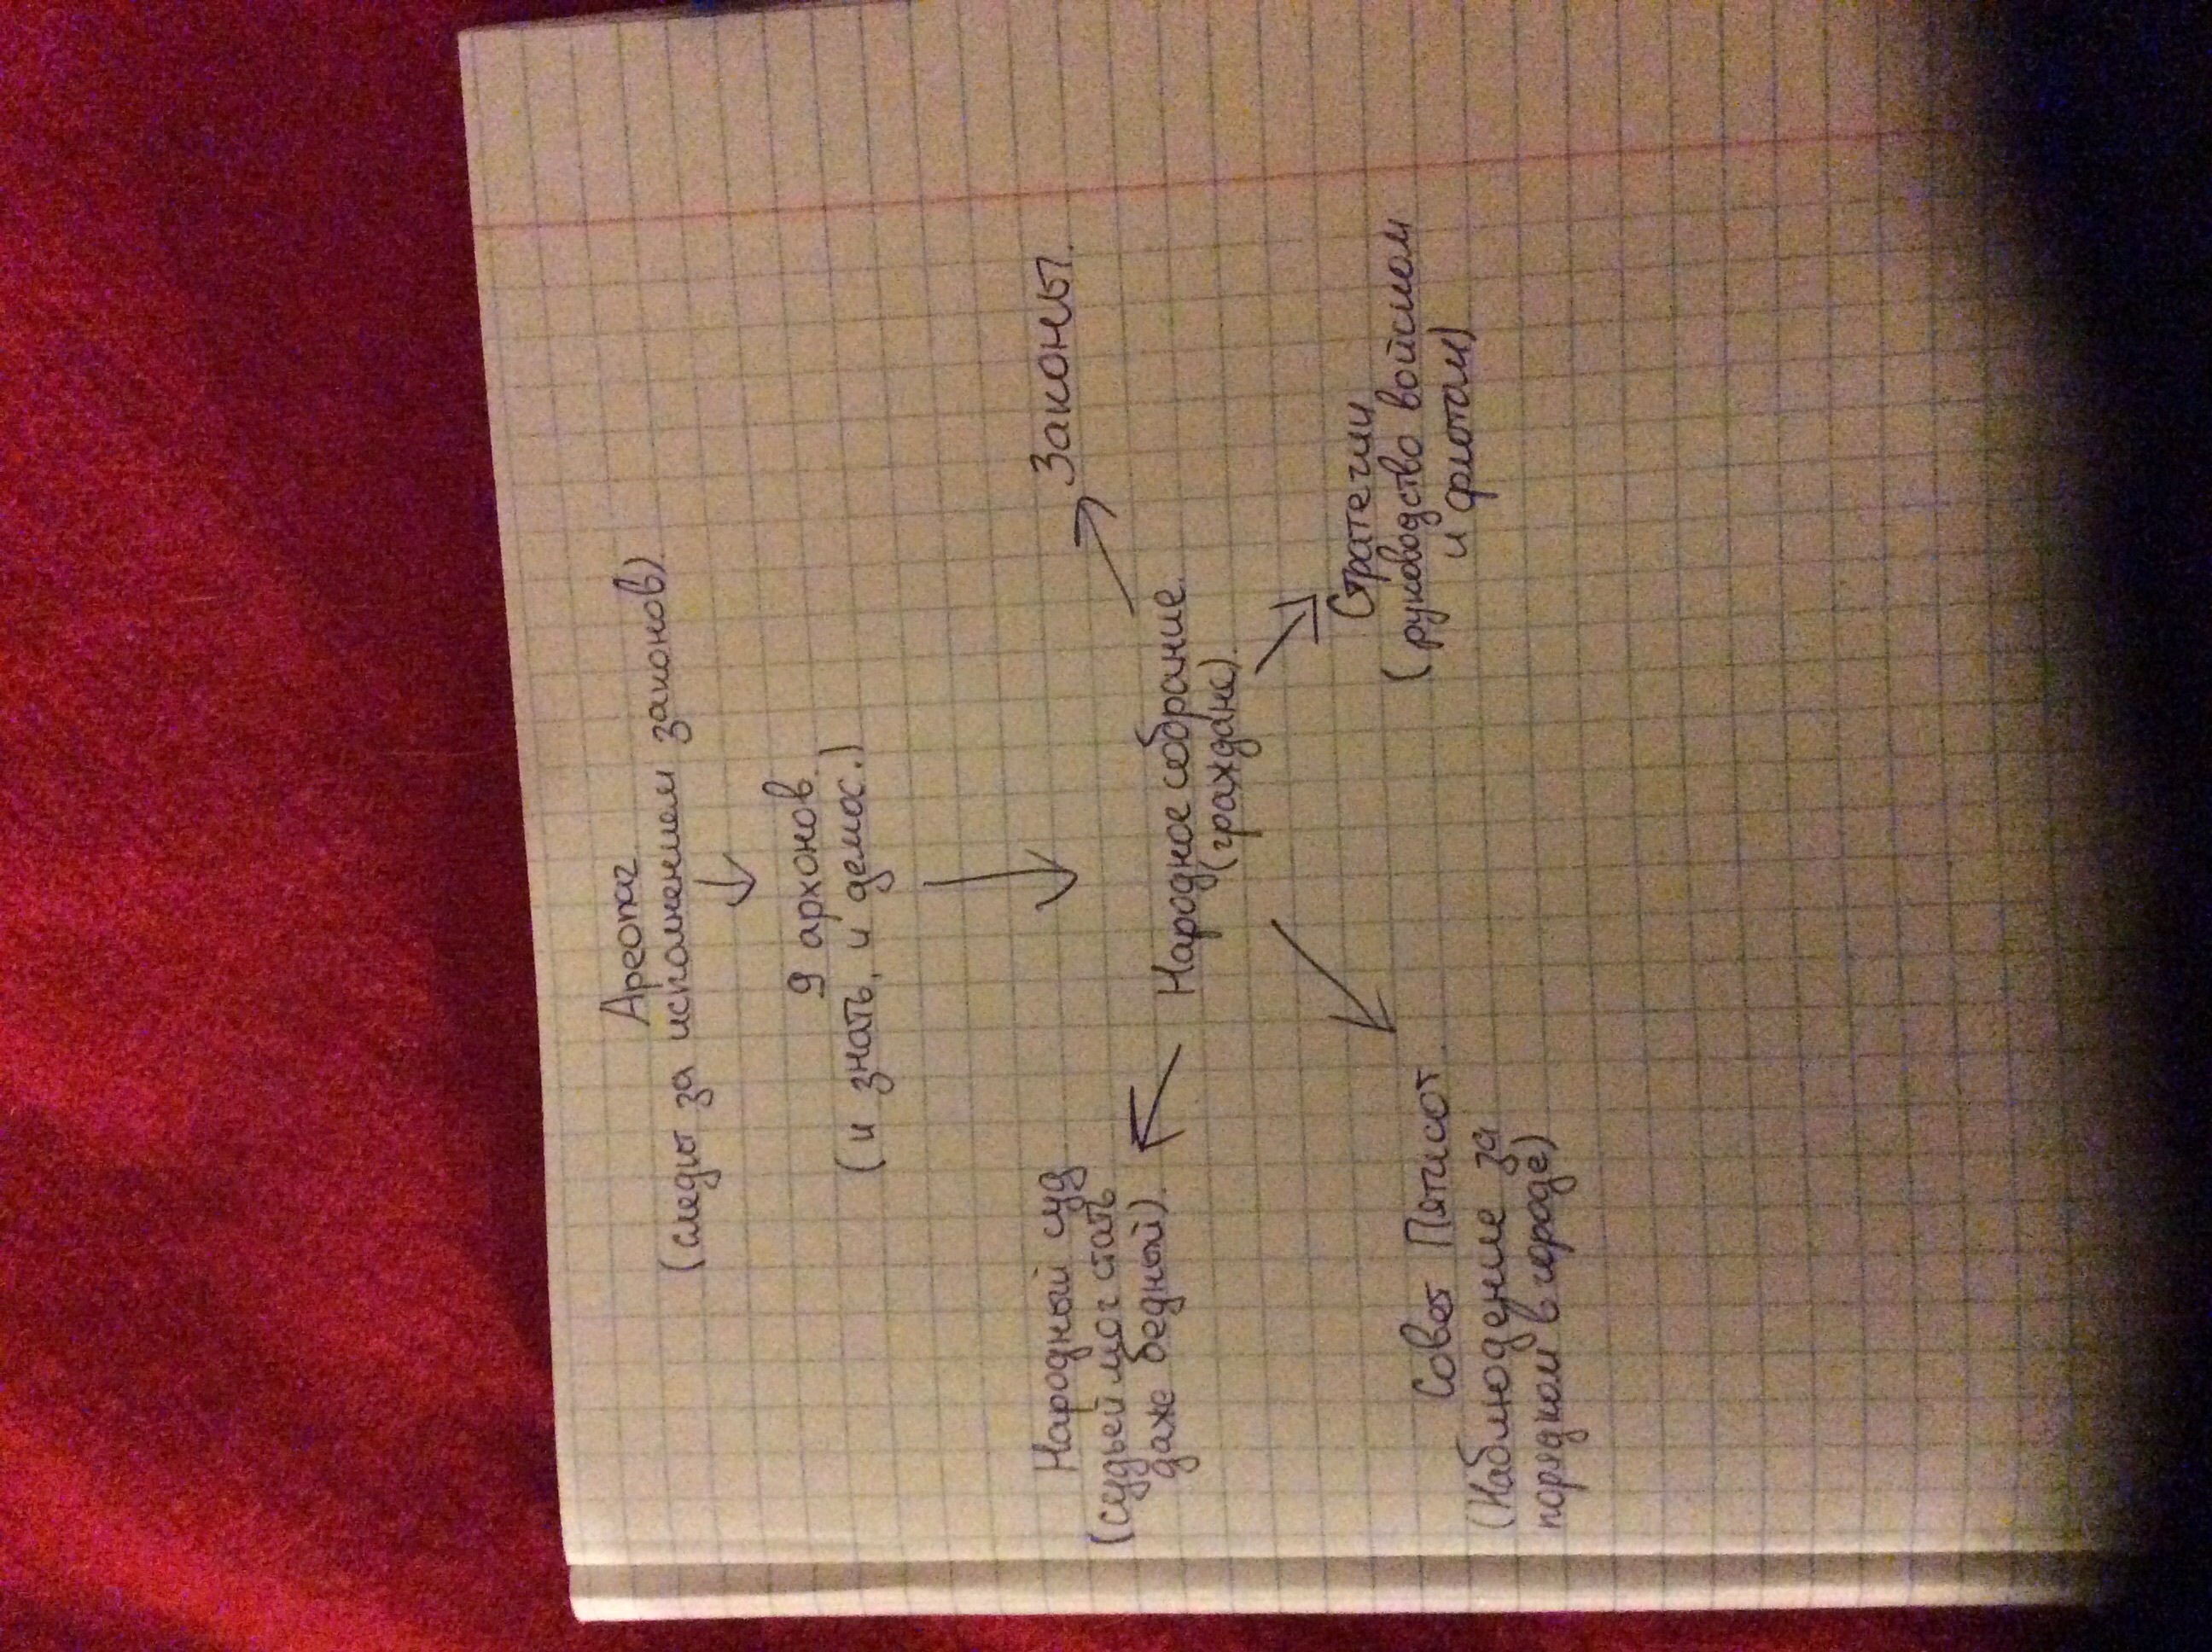 Ареопаг
(следит за исполнением законов)
9 архонов
(и знать, и демос.)
Законы.
Народное собрание.
(граждане).
Народный суд
(судьей мог стать
даже бедный).
Стратегии
(руководство войском
и флотом)
Совет Пятисот
(Наблюдение за
порядком в городе)